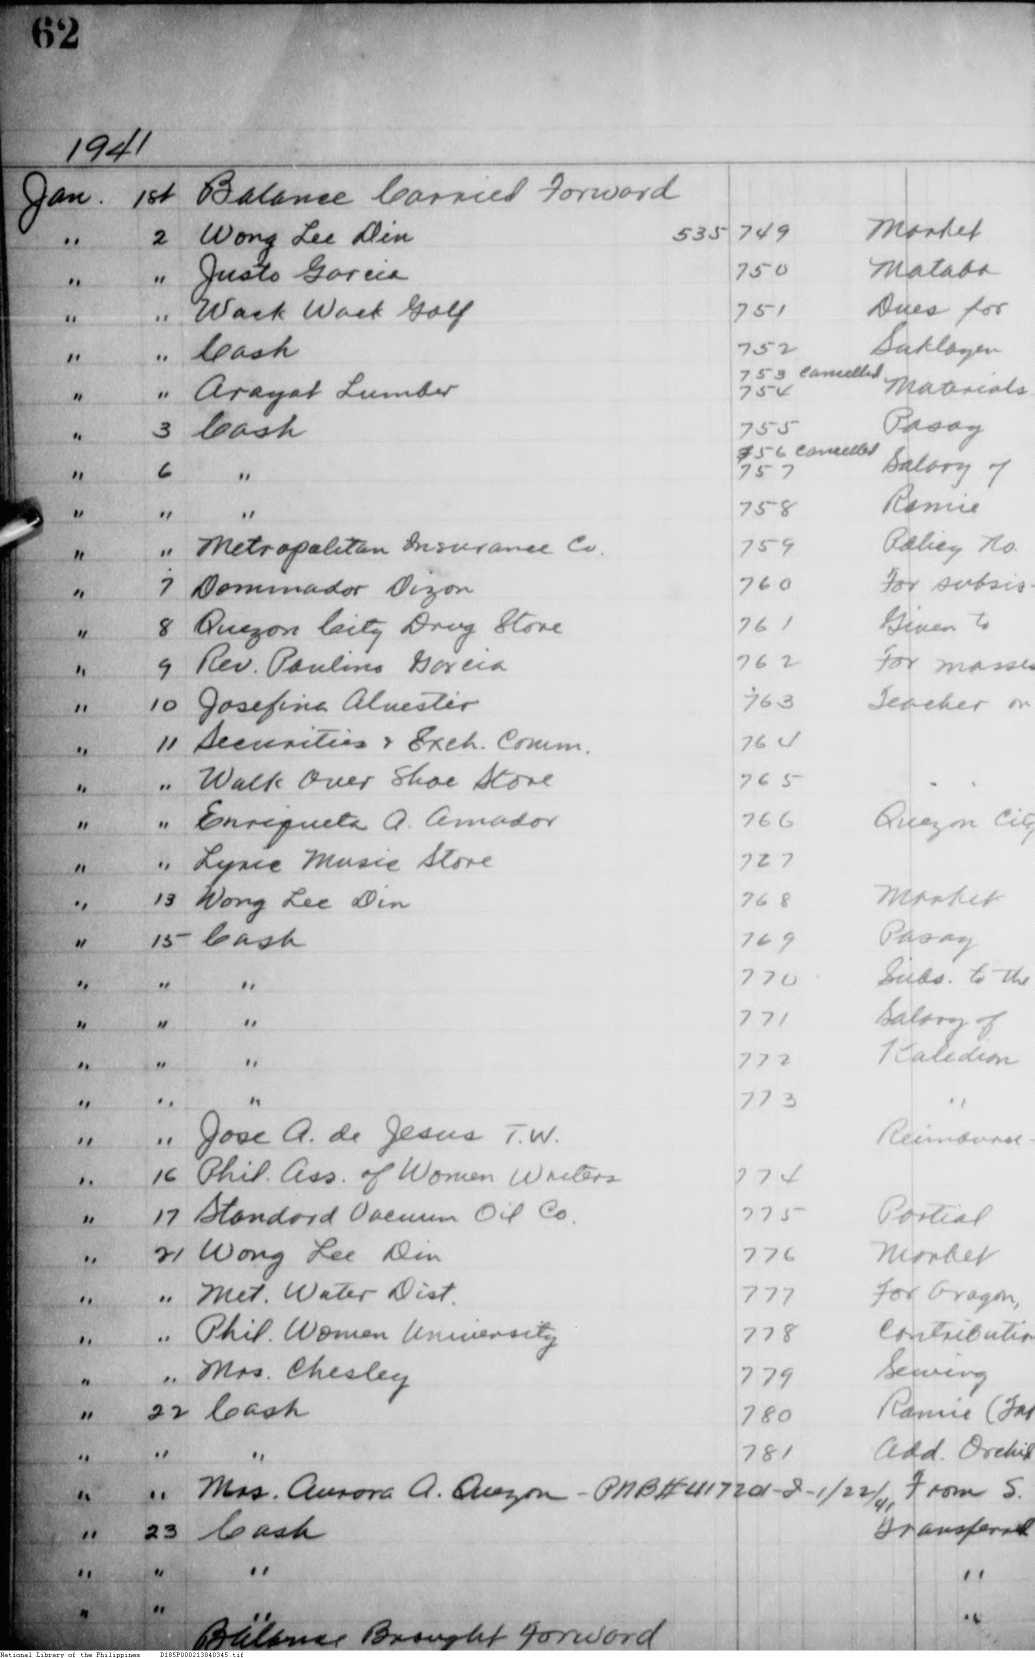 62
1941
Jan. 1st Balance Carried Forward
" 2 Wong Lee Din 535 749 Market
" " Justo Garcia 750 Mataba
" " Wack Wack Golf 751 Dues for
" " Cash 752
753 cancelled
" " Arayat Lumber 754 Materials
" 3 Cash 755 Pasay
756 cancelled
" 6 " 757 Salary of
" " " 758 Ramie
" " Metropolitan Insurance Co. 759 Policy No.
" 7 Dominador Dizon 760 For subsis-
" 8 Quezon City Drug Store 761 Given to
" 9 Rev. Paulino Garcia 762 For masses
" 10 Josefina 763 Teacher on
" 11 Securities & Exch. Comm. 764
" " Walk Over Shoe Store 765
" " Enriqueta A. Amador 766 Quezon City
" " Lyric Music Store 727
" 13 Wong Lee Din 768 Market
" 15 Cash 769 Pasay
" " " 770 Subs. to the
" " " 771 Salary of
" " " 772
" " " 773 "
" " Jose A. de Jesus T.W. Reimburse-
" 16 Phil. Ass. of Women Writers 774
" 17 Standard Vacuum Oil Co. 775 Partial
" 21 Wong Lee Din 776 Market
" " Met. Water Dist. 777 For Aragon,
" " Phil. Women University 778 Contribution
" " Mrs. Chesley 779 Sewing
" 22 Cash 780 Ramie (
" " " 781 Add. Orchid
" " Mrs. Aurora A. Quezon - PNB# 41720 1/22/41 From S.
" 23 Cash Transferred
" " " "
" " " "
Balance Brought Forward
National Library of the Philippines D185P000213840345.tif